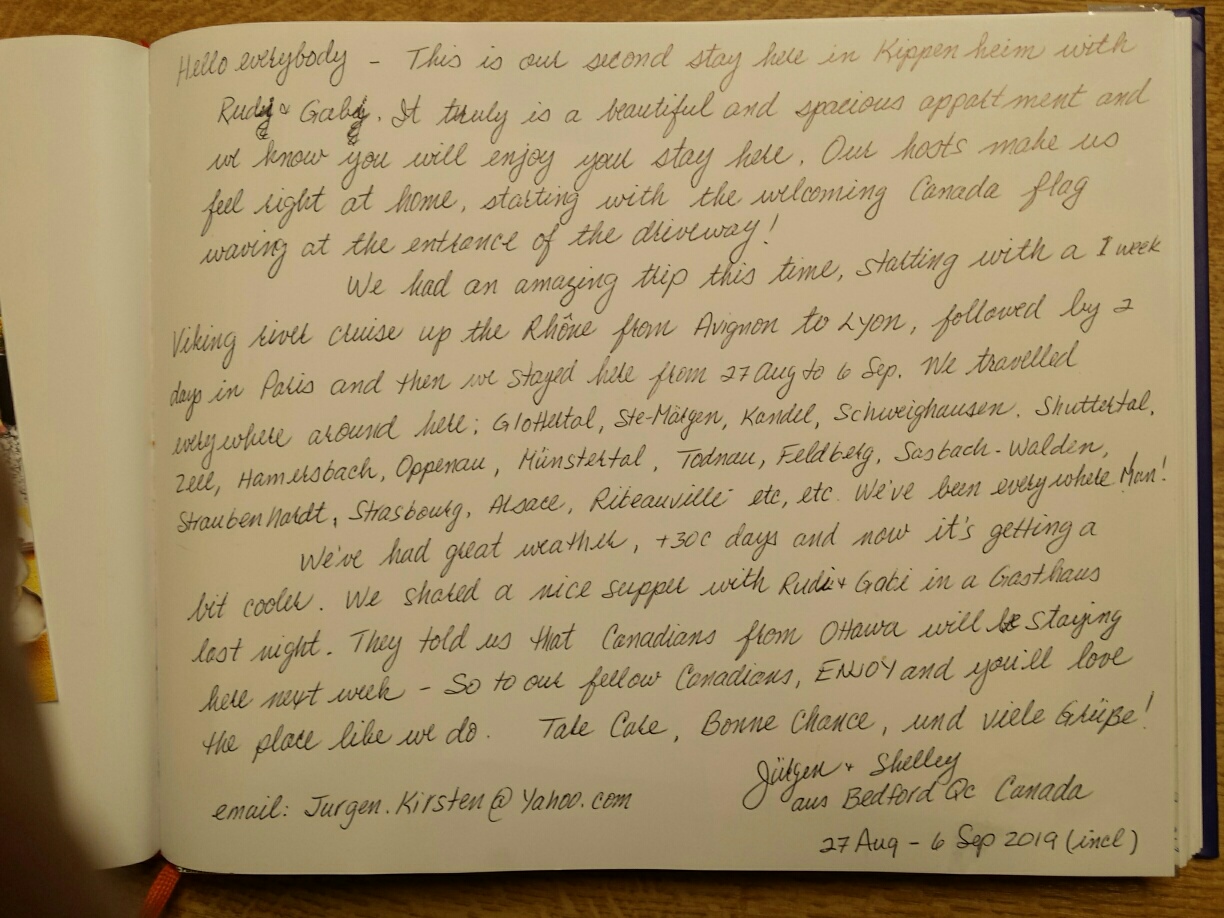 Hello everybody - This is our second stay here in Kippenheim with
Rudy & Gaby. It truly is a beautiful and spacious appartment and
we know you will enjoy your stay here. Our hosts make us
feel right at home, starting with the welcoming Canada flag
waving at the entrance of the driveway!
We had an amazing trip this time, starting with a 1 week
Viking river cruise up the Rhône from Avignon to Lyon, followed by 2
days in Paris and then we stayed here from 27 Aug to 6 Sep. We travelled
everywhere around here; Glottertal, Ste-Märgen, Kandel, Schweighausen. Shuttertal,
Zell, Hamersbach, Oppenau, Münstertal, Todnau, Feldberg, Sasbach-Walden,
Straubenhardt, Strasbourg, Alsace, Ribeauville etc, etc. We've been everywhere Man!
We've had great weather, +30c days and now it's getting a
bit cooler. We shared a nice supper with Rudi & Gabi in a Gasthaus
last night. They told us that Canadians from Ottawa will be staying
here next week - So to our fellow Canadians, ENJOY and you'll love
the place like we do. Take Care, Bonne Chance, und viele Grüße!
Jürgen + Shelley
email: Jurgen.Kirsten@Yahoo.com aus Bedford Qc Canada
27 Aug - 6 Sep 2019 (incl)